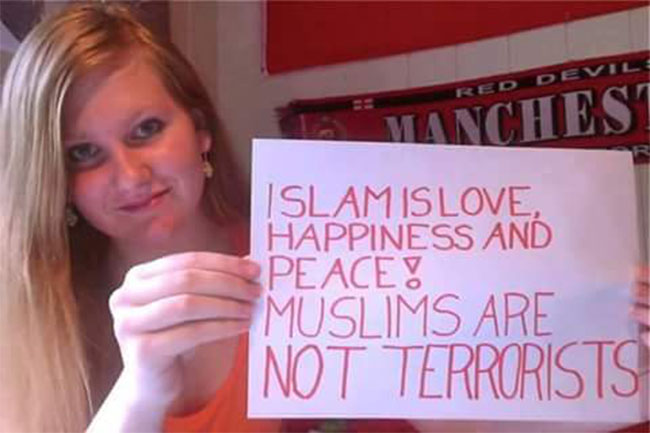 RED DEVILS
MANCHEST
ISLAM IS LOVE,
HAPPINESS AND
PEACE!
MUSLIMS ARE
NOT TERRORISTS